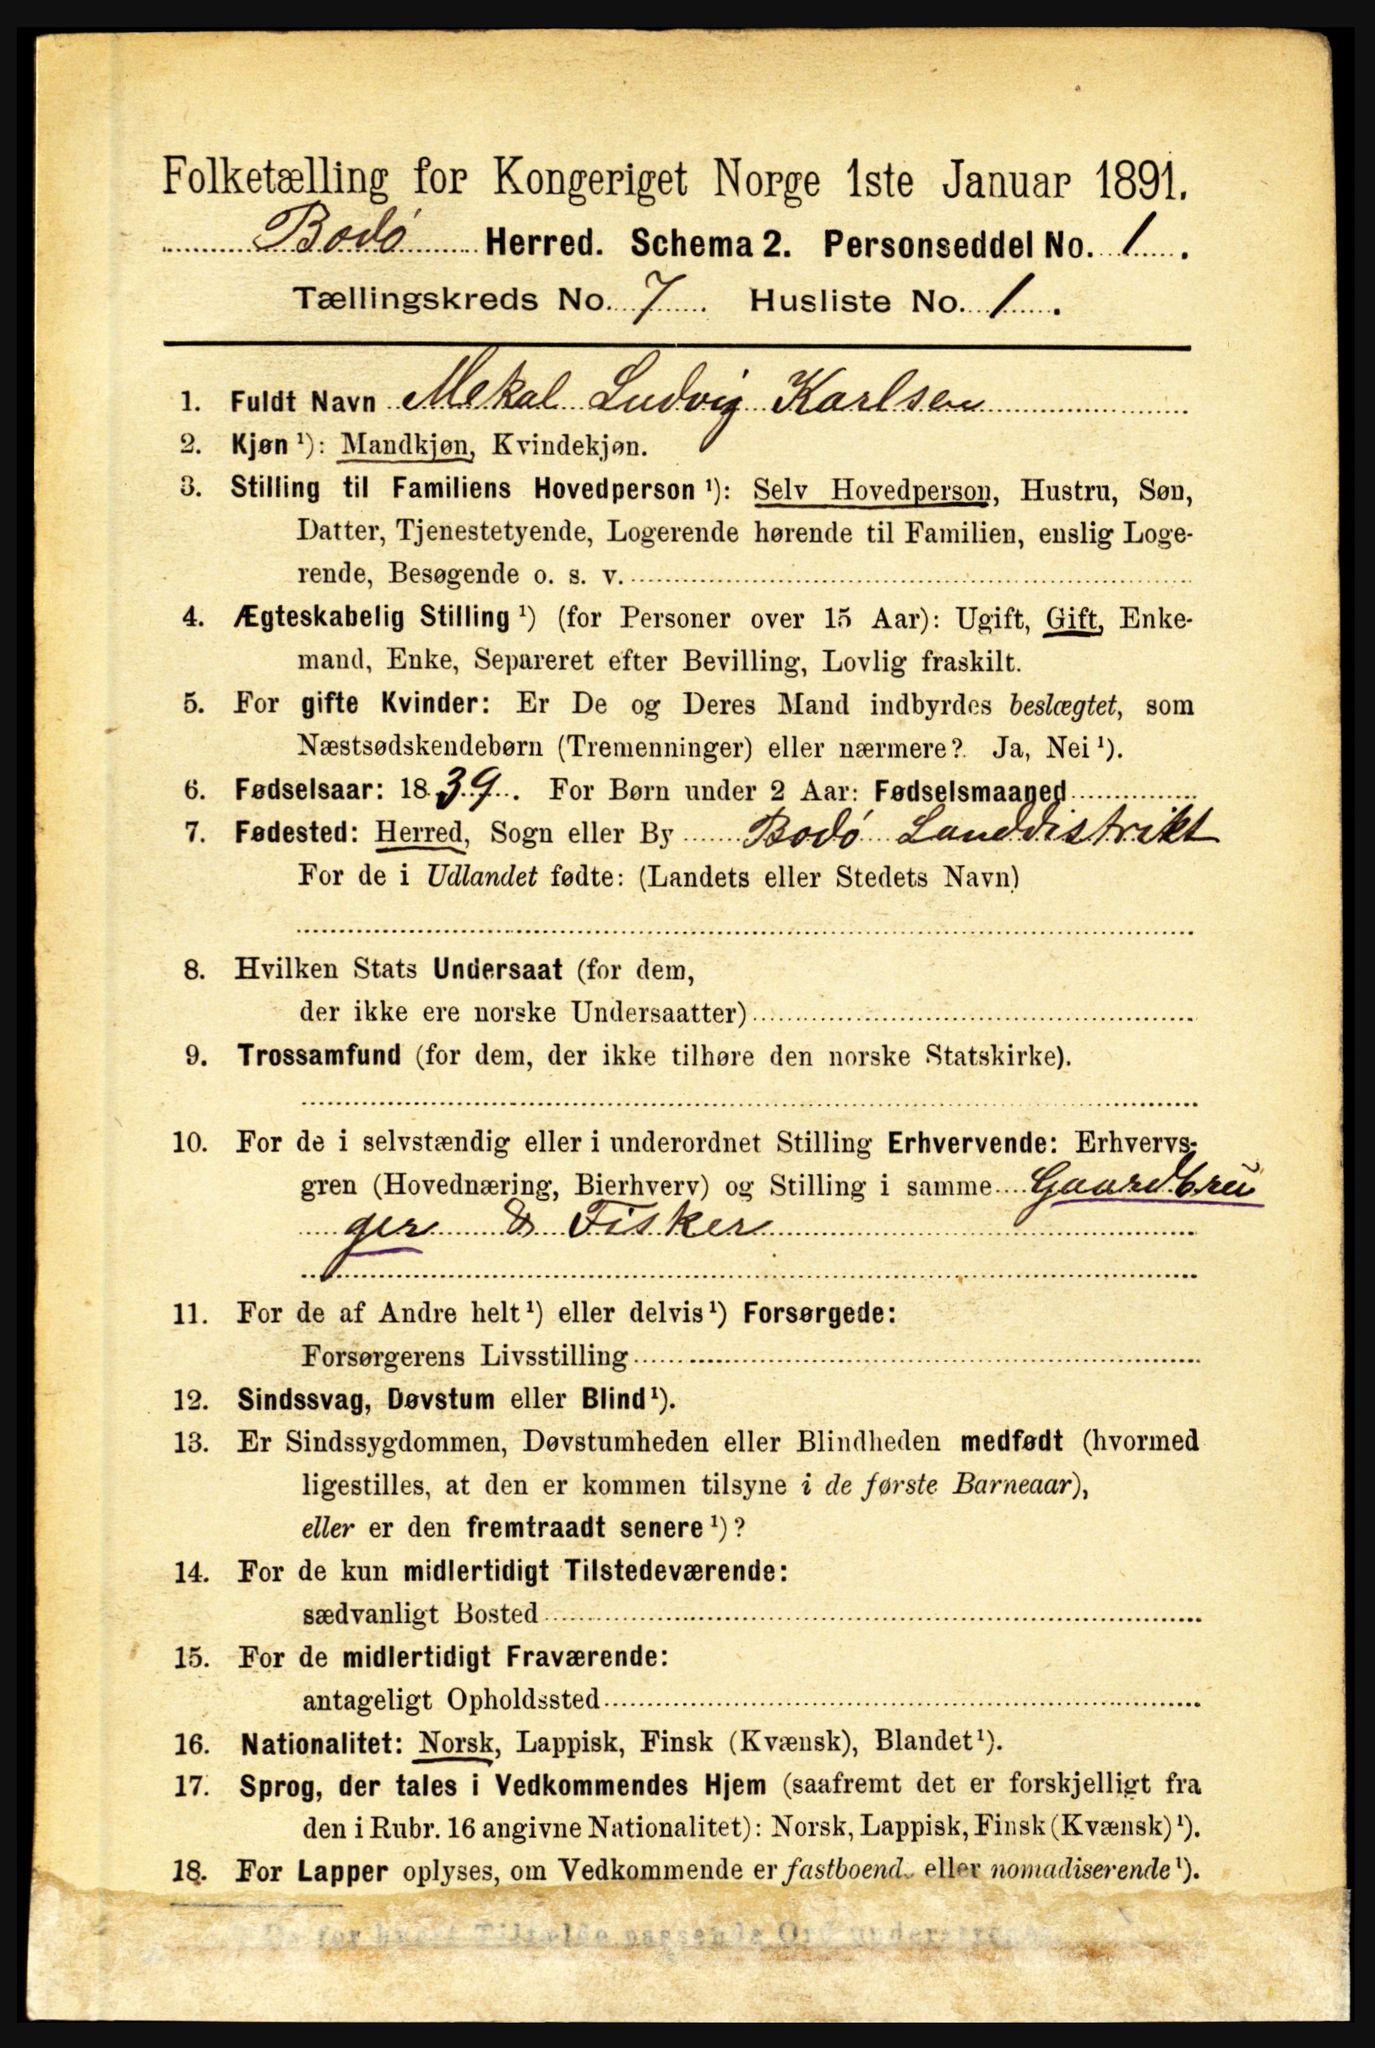 Folketælling for Kongeriget Norge 1ste Januar 1891.
Bodø Herred. Schema 2. Personseddel No. 1.
Tællingskreds No. 7. Husliste No. 1.
1. Fuldt Navn Mekal Ludvig Karlsen
2. Kjøn ¹): Mandkjøn, Kvindekjøn.
3. Stilling til Familiens Hovedperson ¹): Selv Hovedperson, Hustru, Søn,
Datter, Tjenestetyende, Logerende hørende til Familien, enslig Loge-
rende, Besøgende o. s. v.
4. Ægteskabelig Stilling ¹) (for Personer over 15 Aar): Ugift, Gift, Enke-
mand, Enke, Separeret efter Bevilling, Lovlig fraskilt.
5. For gifte Kvinder: Er De og Deres Mand indbyrdes beslægtet, som
Næstsødskendebørn (Tremenninger) eller nærmere? Ja, Nei ¹).
6. Fødselsaar: 1839. For Børn under 2 Aar: Fødselsmaaned
7. Fødested: Herred, Sogn eller By Bodø Landdistrikt
For de i Udlandet fødte: (Landets eller Stedets Navn)
8. Hvilken Stats Undersaat (for dem,
der ikke ere norske Undersaatter)
9. Trossamfund (for dem, der ikke tilhøre den norske Statskirke).
10. For de i selvstændig eller i underordnet Stilling Erhvervende: Erhvervs-
gren (Hovednæring, Bierhverv) og Stilling i samme Gaardbru
ger & Fisker
11. For de af Andre helt ¹) eller delvis ¹) Forsørgede:
Forsørgerens Livsstilling
12. Sindssvag, Døvstum eller Blind ¹).
13. Er Sindssygdommen, Døvstumheden eller Blindheden medfødt (hvormed
ligestilles, at den er kommen tilsyne i de første Barneaar),
eller er den fremtraadt senere ¹)?
14. For de kun midlertidigt Tilstedeværende:
sædvanligt Bosted
15. For de midlertidigt Fraværende:
antageligt Opholdssted
16. Nationalitet: Norsk, Lappisk, Finsk (Kvænsk), Blandet ¹).
17. Sprog, der tales i Vedkommendes Hjem (saafremt det er forskjelligt fra
den i Rubr. 16 angivne Nationalitet): Norsk, Lappisk, Finsk (Kvænsk) ¹).
18. For Lapper oplyses, om Vedkommende er fastboend. eller nomadiserende ¹).
De for hvert Tilfælde passende Ord